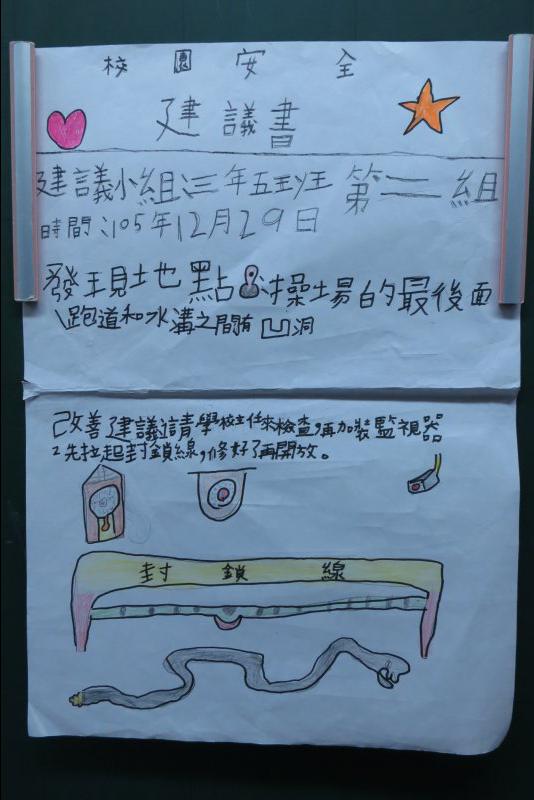 校園安全
建議書
建議小組:三年五班 第二組
時間:105年12月29日
發現地點:操場的最後面
跑道和水溝之間有凹洞
改善建議:請學校主任來檢查,再加裝監視器
2先拉起封鎖線,修好了再開放。
封鎖線